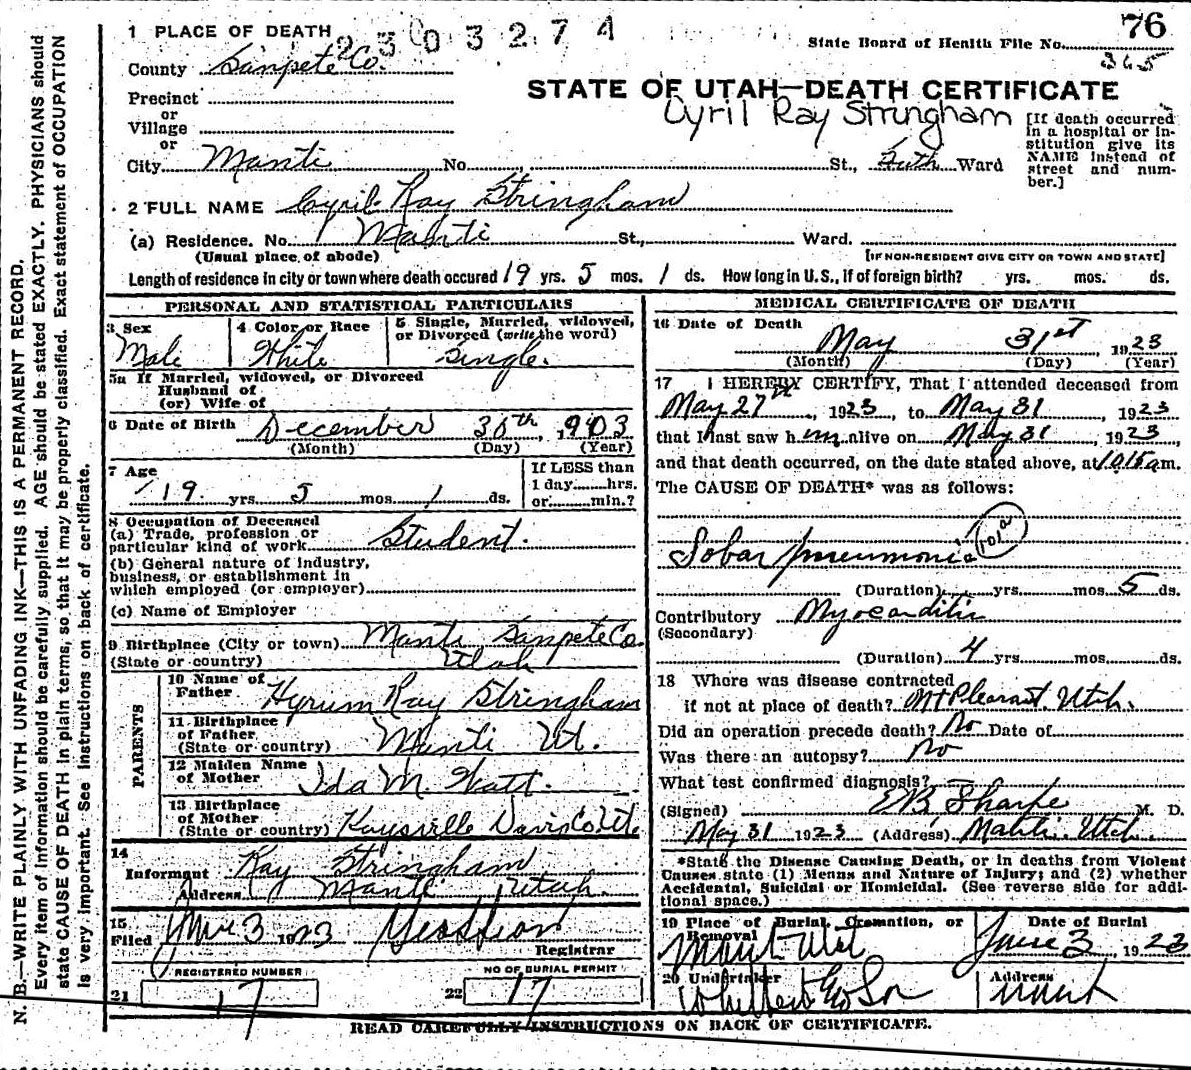 76
1 PLACE OF DEATH
2303274
State Board of Health File No.
365
County Sanpete Co.
STATE OF UTAH—DEATH CERTIFICATE
Precinct
or
Village
or
Cyril Ray Stringham
[If death occurred in a hospital or institution give its NAME instead of street and number.]
City Manti No. St., Ward
2 FULL NAME Cyril Ray Stringham
(a) Residence. No. Manti St., Ward.
(Usual place of abode) [IF NON-RESIDENT GIVE CITY OR TOWN AND STATE]
Length of residence in city or town where death occured 19 yrs. 5 mos. 1 ds. How long in U.S., if of foreign birth? yrs. mos. ds.
PERSONAL AND STATISTICAL PARTICULARS
3 Sex
Male
4 Color or Race
White
5 Single, Married, widowed, or Divorced (write the word)
Single.
5a If Married, widowed, or Divorced
Husband of
(or) Wife of
6 Date of Birth December 30th, 1903
(Month) (Day) (Year)
7 Age
19 yrs. 5 mos. 1 ds.
If LESS than
1 day hrs.
or min.?
8 Occupation of Deceased
(a) Trade, profession or
particular kind of work Student.
(b) General nature of industry,
business, or establishment in
which employed (or employer)
(c) Name of Employer
9 Birthplace (City or town) Manti Sanpete Co.
(State or country) Utah
PARENTS
10 Name of
Father Hyrum Ray Stringham
11 Birthplace
of Father
(State or country) Manti Ut.
12 Maiden Name
of Mother Ida M. Watt.
13 Birthplace
of Mother
(State or country) Kaysville Davis Co Ut.
14
Informant Ray Stringham
Address Manti Utah.
15
Filed June 3 1923
Registrar
REGISTERED NUMBER
21 17
NO OF BURIAL PERMIT
22 17
MEDICAL CERTIFICATE OF DEATH
16 Date of Death
May 31st 1923
(Month) (Day) (Year)
17 I HEREBY CERTIFY, That I attended deceased from
May 27th, 1923, to May 31, 1923
that I last saw him alive on May 31, 1923,
and that death occurred, on the date stated above, at 10.15 a m.
The CAUSE OF DEATH* was as follows:
101a
Lobar pneumonia
(Duration) yrs. mos. 5 ds.
Contributory Myocarditis
(Secondary)
(Duration) 4 yrs. mos. ds.
18 Where was disease contracted
if not at place of death? Mt Pleasant. Utah.
Did an operation precede death? No Date of
Was there an autopsy? No
What test confirmed diagnosis?
(Signed) E B Sharpe M. D.
May 31 1923 (Address) Manti. Utah.
*State the Disease Causing Death, or in deaths from Violent
Causes state (1) Menus and Nature of Injury; and (2) whether
Accidental, Suicidal or Homicidal. (See reverse side for addi-
tional space.)
19 Place of Burial, Cremation, or
Removal
Manti Utah
Date of Burial
June 3, 1923
20 Undertaker
Address
Manti
READ CAREFULLY INSTRUCTIONS ON BACK OF CERTIFICATE.
N. B.—WRITE PLAINLY WITH UNFADING INK—THIS IS A PERMANENT RECORD.
Every item of information should be carefully supplied. AGE should be stated EXACTLY. PHYSICIANS should
state CAUSE OF DEATH in plain terms, so that it may be properly classified. Exact statement of OCCUPATION
is very important. See instructions on back of certificate.